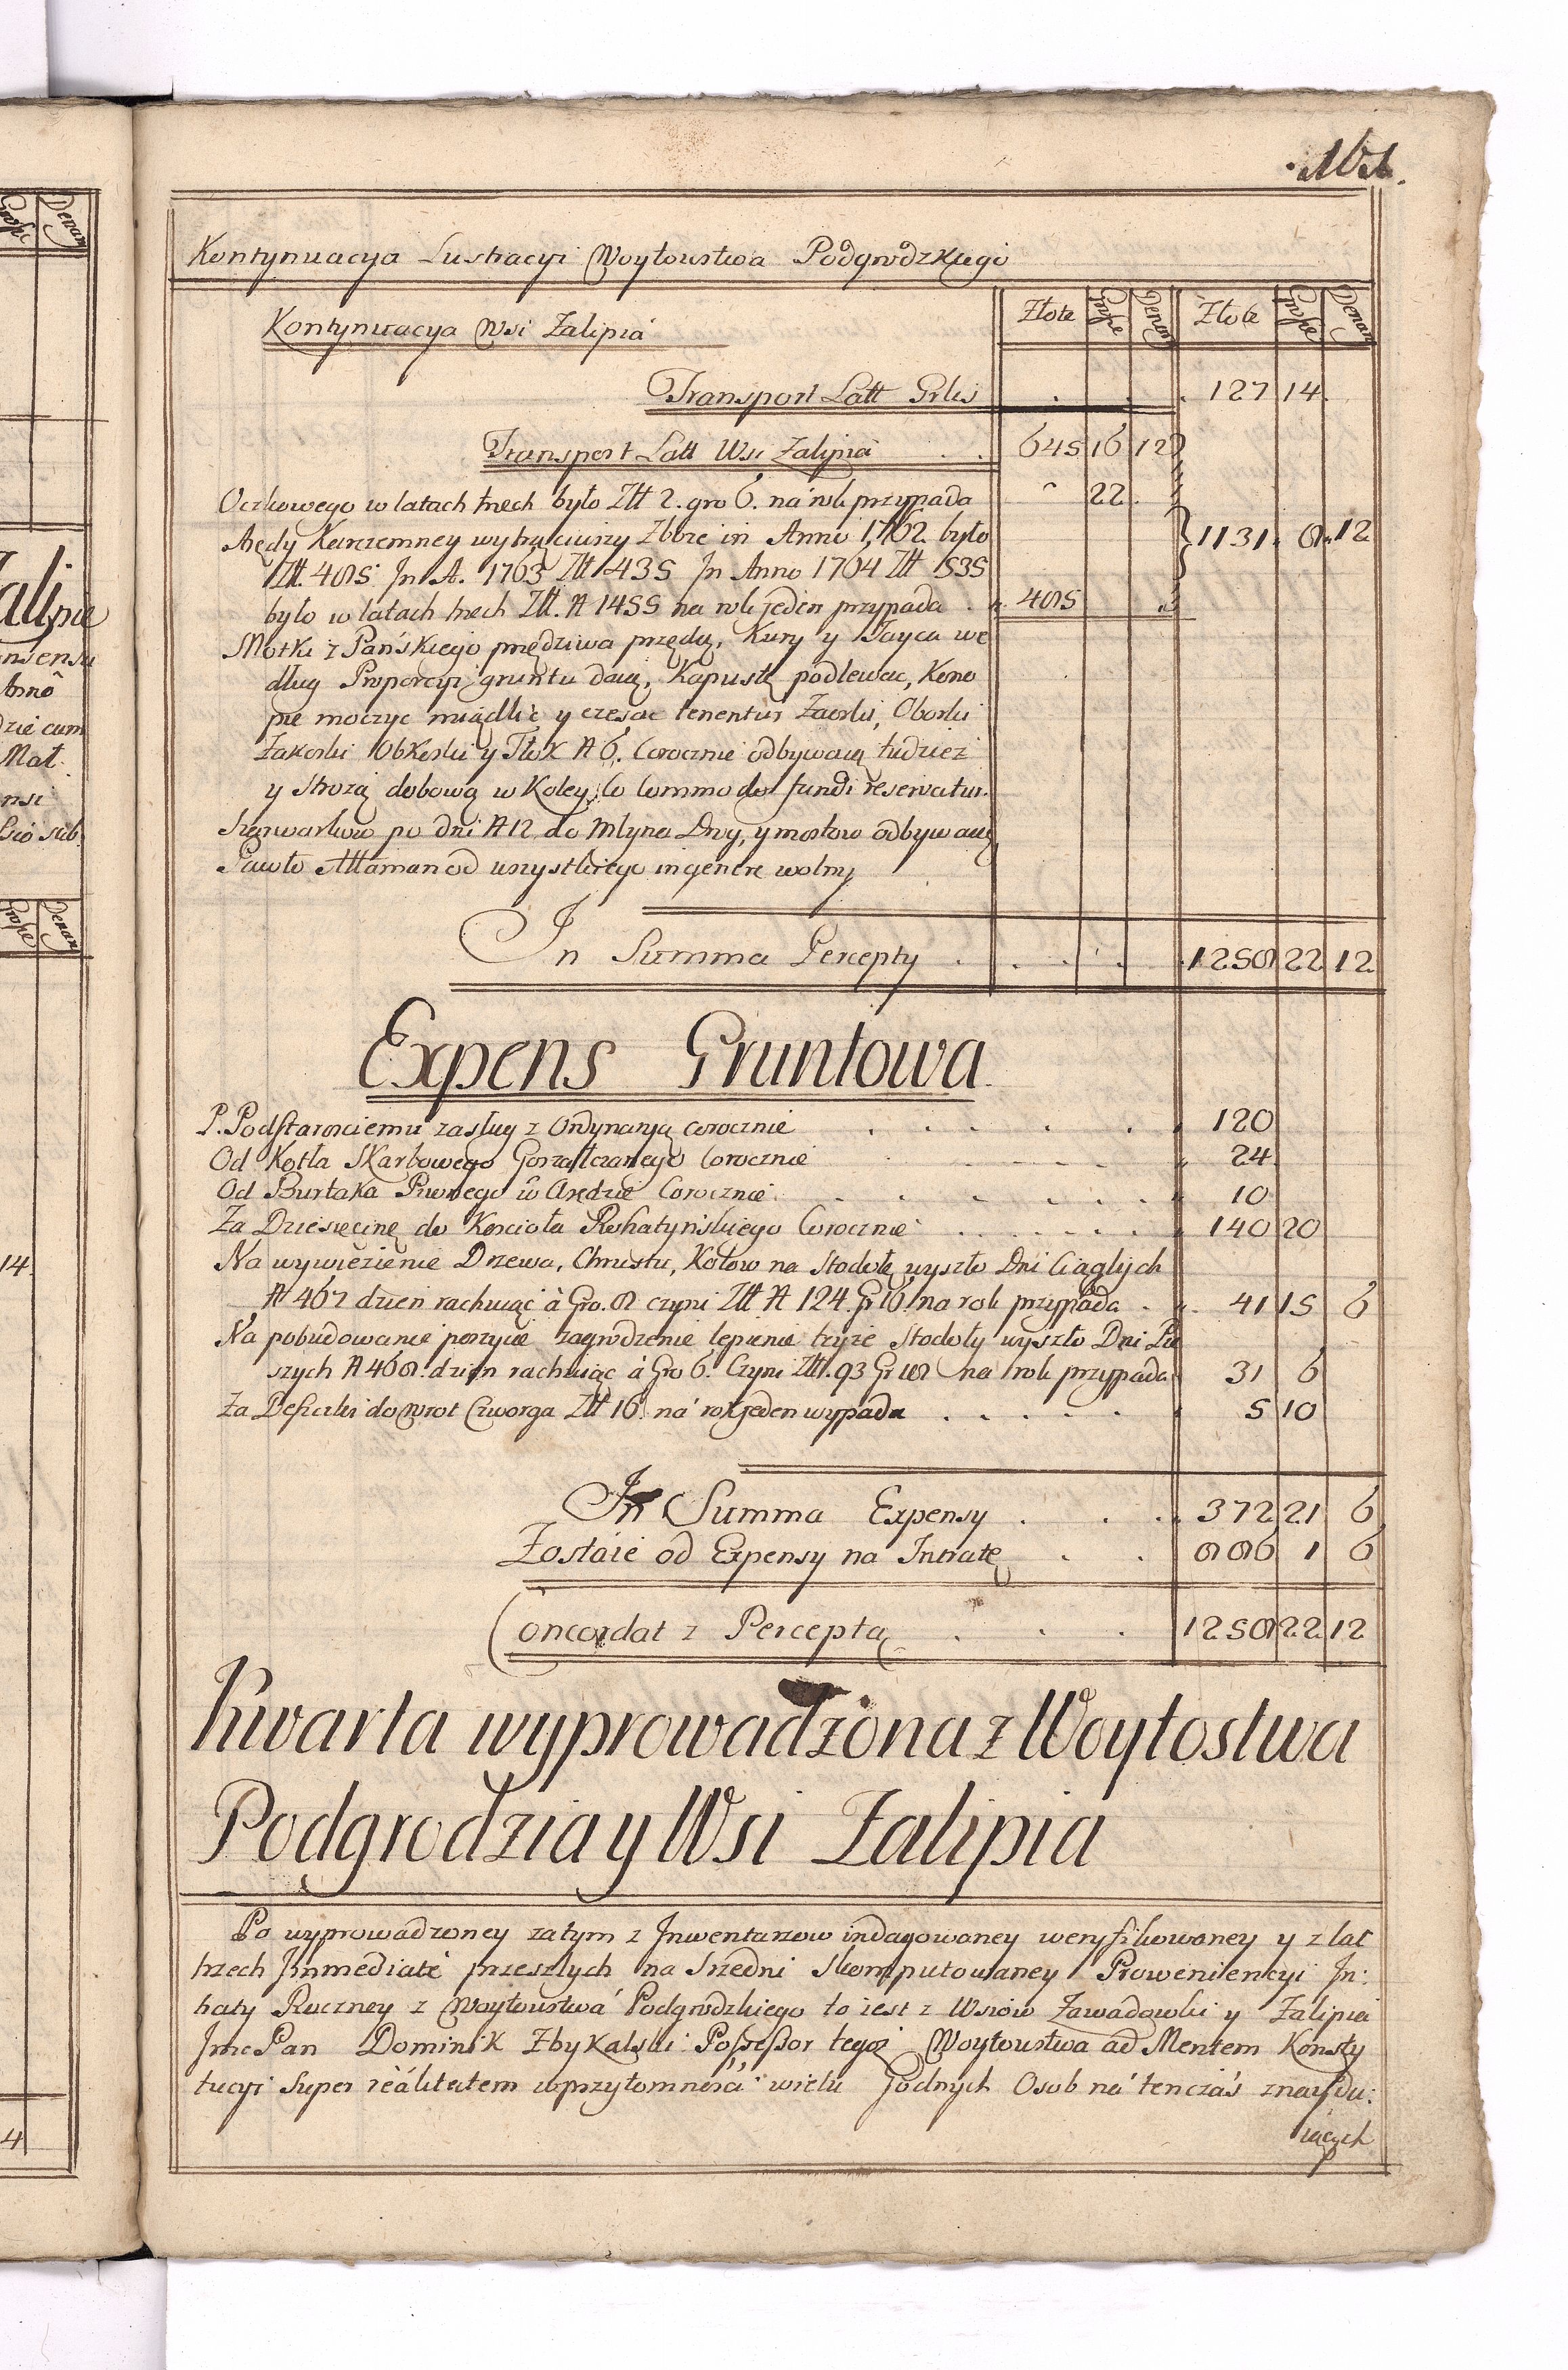 161.
Kontynuacya Lustracyi Woytowstwa Podgrodzkiego
Kontynuacya Wsi Zalipia
Złote Grosze Denar Złote Grosze Denar
Transport Latt Prlis . . . 127 14
Transport Latt Wsi Zalipia . . 645 16 12
Oczkowego w latach trzech było Złł 2. gro 6. na rok przypada 22.
Arędy Karczemney wytrąciwszy Zboże in Anno 1762 było 1131. 8. 12
Złł. 485. In A. 1763 Złł 435 In Anno 1764 Złł 535
było w latach trzech Złł. N 1455 na rok jeden przypada . 485
Motki z Pańskiego przędziwa przędą, Kury y Jayca we
dług Proporcyi gruntu daią, Kapustę podlewac, Kono
pie moczyc międlic y czesac tenentur Zaorki, Oborki
Zakoski Obkoski y Tłok N 6. Corocznie odbywaią tudziez
y Strozą dobową w Koley, Co Commodo fundi reservatur.
Szarwarkow po dni N 12 do Młyna Drog, y mostow odbywaią
Pawło Attaman od wszystkiego in genere wolny
In Summa Percepty . . . . 1258 22 12
Expens Gruntowa
P. Podstarosciemu zasług z Ordynaryą corocznie . . . . 120
Od Kotła Skarbowego Gorzałczanego Corocznie 24
Od Burtaka Piwnego w Arędzie Corocznie . . . . 10
Za Dziesięcinę do Koscioła Rohatyńskiego Corocznie . . . . 140 20
Na wywiezienie Drzewa, Chrustu, Kołow na Stodołę wyszło Dni Ciągłych
N 467 dzień rachuiąc à Gro. 8 czyni Złł N 124. Gr 16 na rok przypada . . 41 15 6
Na pobudowanie poszycie zagrodzenie lepienie teyże Stodoły wyszło Dni Pie
szych N 468. dzien rachuiąc à Gro 6. Czyni Złł. 93 Gr 18 na rok przypada 31 6
Za Deszczki do wrot Czworga Złł 16 na rok jeden wypada . . . . 5 10
In Summa Expensy . . . 372 21 6
Zostaie od Expensy na Intratę . . 886 1 6
Concordat z Perceptą . . . 1258 22 12
Kwarta wyprowadzona z Woytostwa
Podgrodzia y Wsi Zalipia
Po wyprowadzoney zatym z Inwentarzow indagowaney weryfikowaney y z lat
trzech Immediate przeszłych na Sredni Skomputowaney Proweniencyi In:
traty Roczney z Woytowstwa Podgrodzkiego to iest z Wsiow Zawadowki y Zalipia
Jmc Pan Dominik Zbykalski Possessor tegoż Woytowstwa ad Mentem Konsty
tucyi Super realitatem w przytomności wielu Godnych Osob na tenczas znaydu:
iących